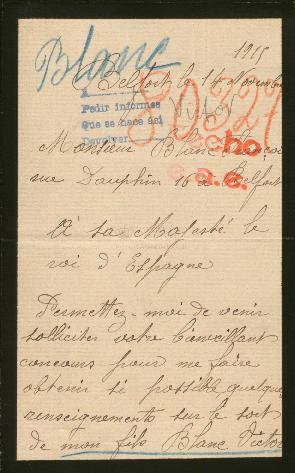 Blanc
1915
Belfort le 14 Novembre
Pedir informes
Que se hace así
Devolver.
Victor
Monsieur Blanc François
rue Dauphin 16 à Belfort
À sa Majesté le
roi d'Espagne
Permettez-moi de venir
solliciter votre bienveillant
concours pour me faire
obtenir si possible quelques
renseignements sur le sort
de mon fils Blanc Victor